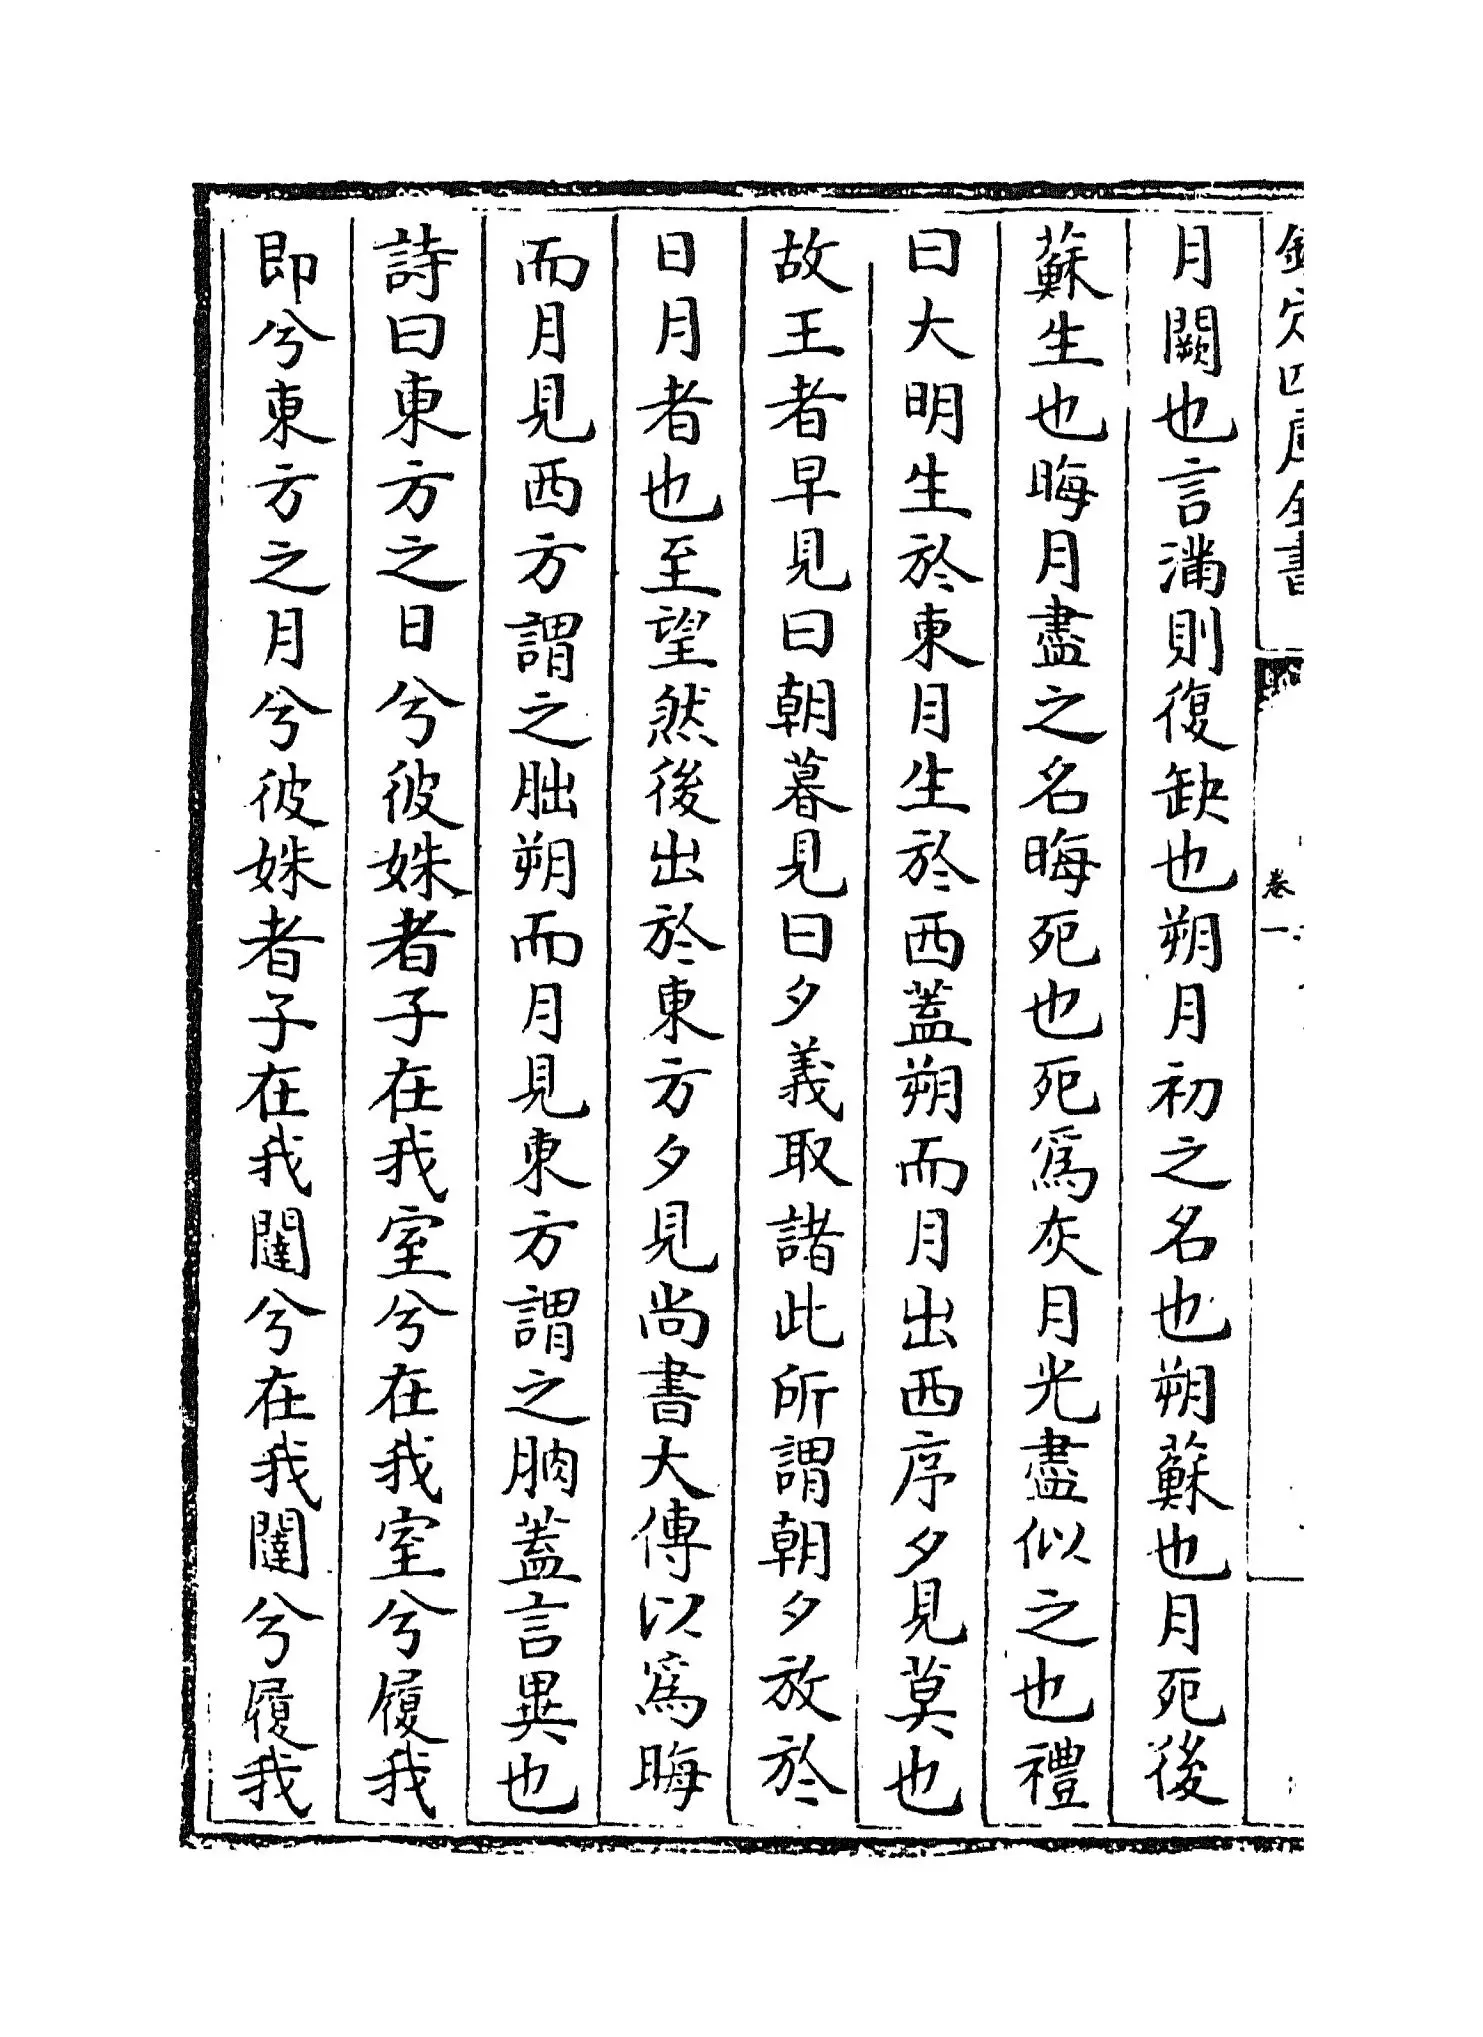 欽定四庫全書
卷一
月闕也言滿則復缺也朔月初之名也朔蘇也月死後
蘇生也晦月盡之名晦死也死為灰月光盡似之也禮
曰大明生於東月生於西蓋朔而月出西序夕見莫也
故王者早見曰朝暮見曰夕義取諸此所謂朝夕放於
日月者也至望然後出於東方夕見尚書大傳以為晦
而月見西方謂之朏朔而月見東方謂之朒蓋言異也
詩曰東方之日兮彼姝者子在我室兮在我室兮履我
即兮東方之月兮彼姝者子在我闥兮在我闥兮履我